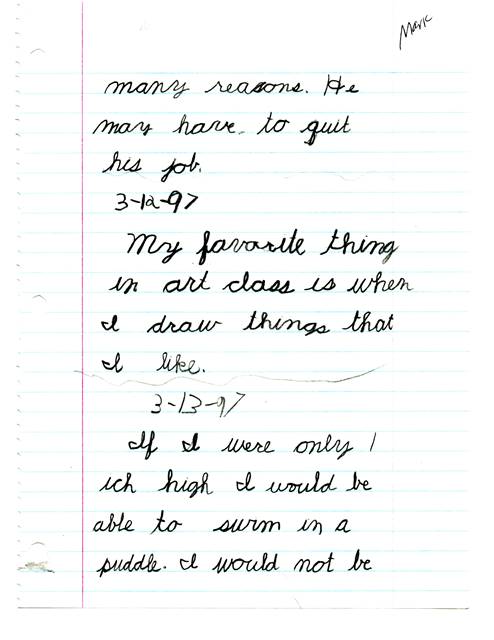 Mark
many reasons. He
may have to quit
his job.
3-12-97
My favorite thing
in art class is when
I draw things that
I like.
3-13-97
If I were only 1
ich high I would be
able to swim in a
puddle. I would not be